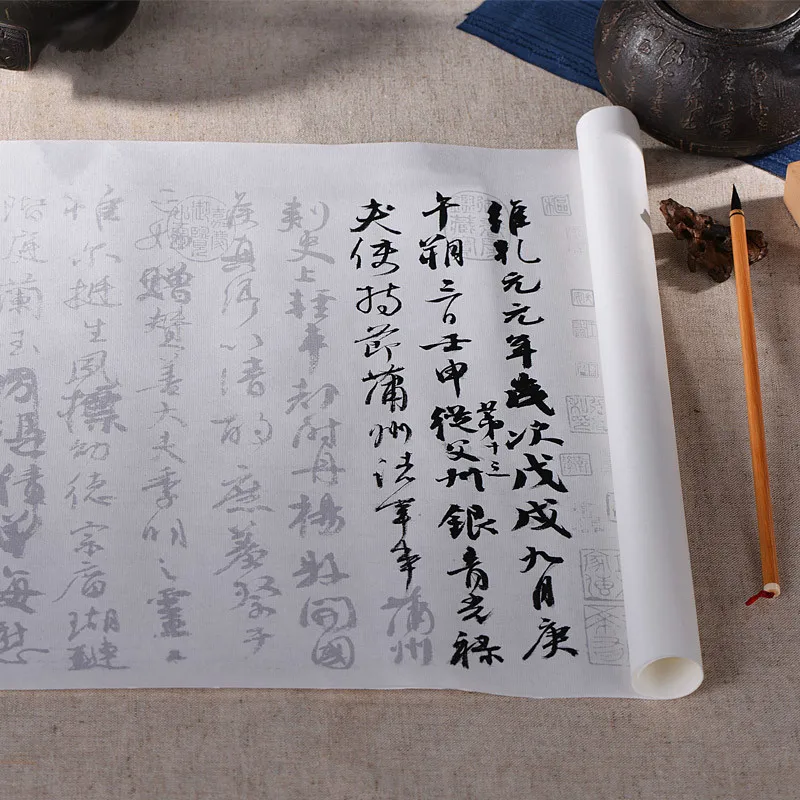 維乾元元年歲次戊戌九月庚
午朔三日壬申第十三從父州銀青光禄
夫使持節蒲州諸軍事蒲州
刺史上輕車都尉丹楊縣開國
侯真卿以清酌庶羞祭于
亡姪贈贊善大夫季明之靈曰
惟尔挺生夙標幼德宗廟瑚璉
階庭蘭玉方憑積善每慰